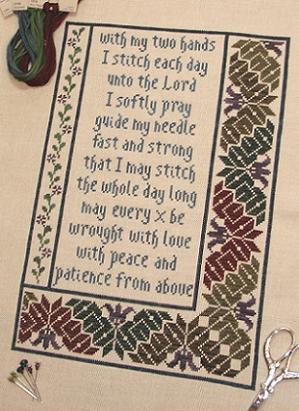 with my two hands
I stitch each day
unto the Lord
I softly pray
guide my needle
fast and strong
that I may stitch
the whole day long
may every x be
wrought with love
with peace and
patience from above